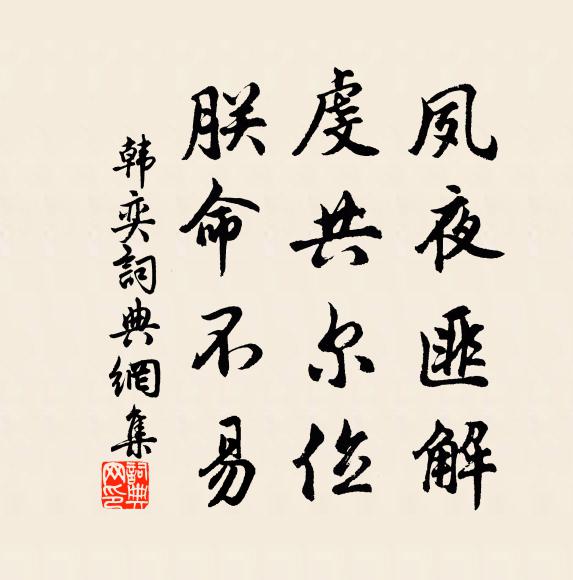 夙夜匪解
虔共尔位
朕命不易
韩奕詞典網集
詞典网印